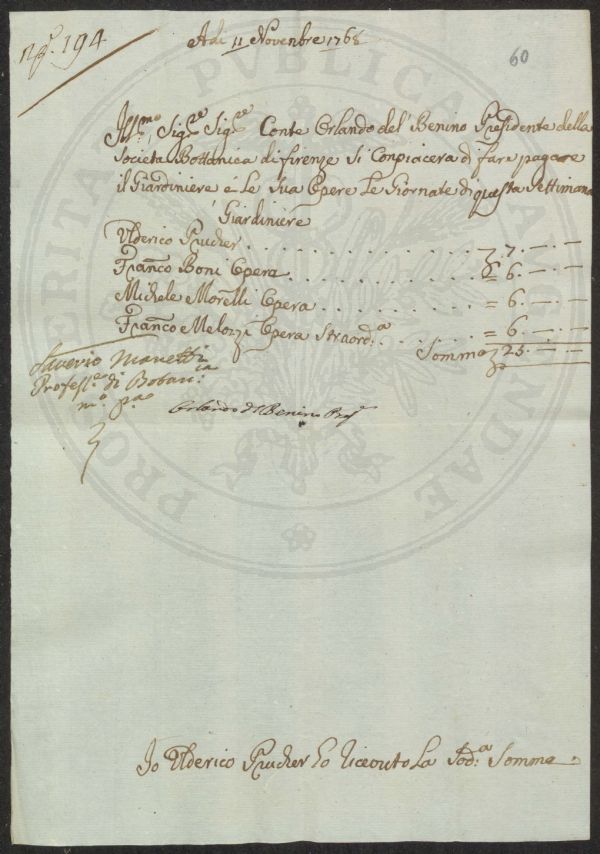 nº. 194
Adi 11 Novembre 1768
60
Ill:mo Sig:re Sig:re Conte Orlando del' Benino Presidente della
Societa Bottanica di firenze Si Conpiacera di fare pagare
il Giardiniere é Le Sua Opere Le Giornate di questa Settimana
Giardiniere
Ulderico Prucher 7.—.—
Franco Boni Opera = 6.—.—
Michele Morelli Opera = 6.—.—
Franco Melozzi Opera Straord:a = 6.—.—
Somma 25.—.—
Saverio Manetti
Profess:re di Botan:ca
mº. pª
Orlando del Benino Pres
Io Ulderico Prucher ho riceouto La Sod:a Somma
PRO PUBLICA PROSPERITATE AUGENDAE